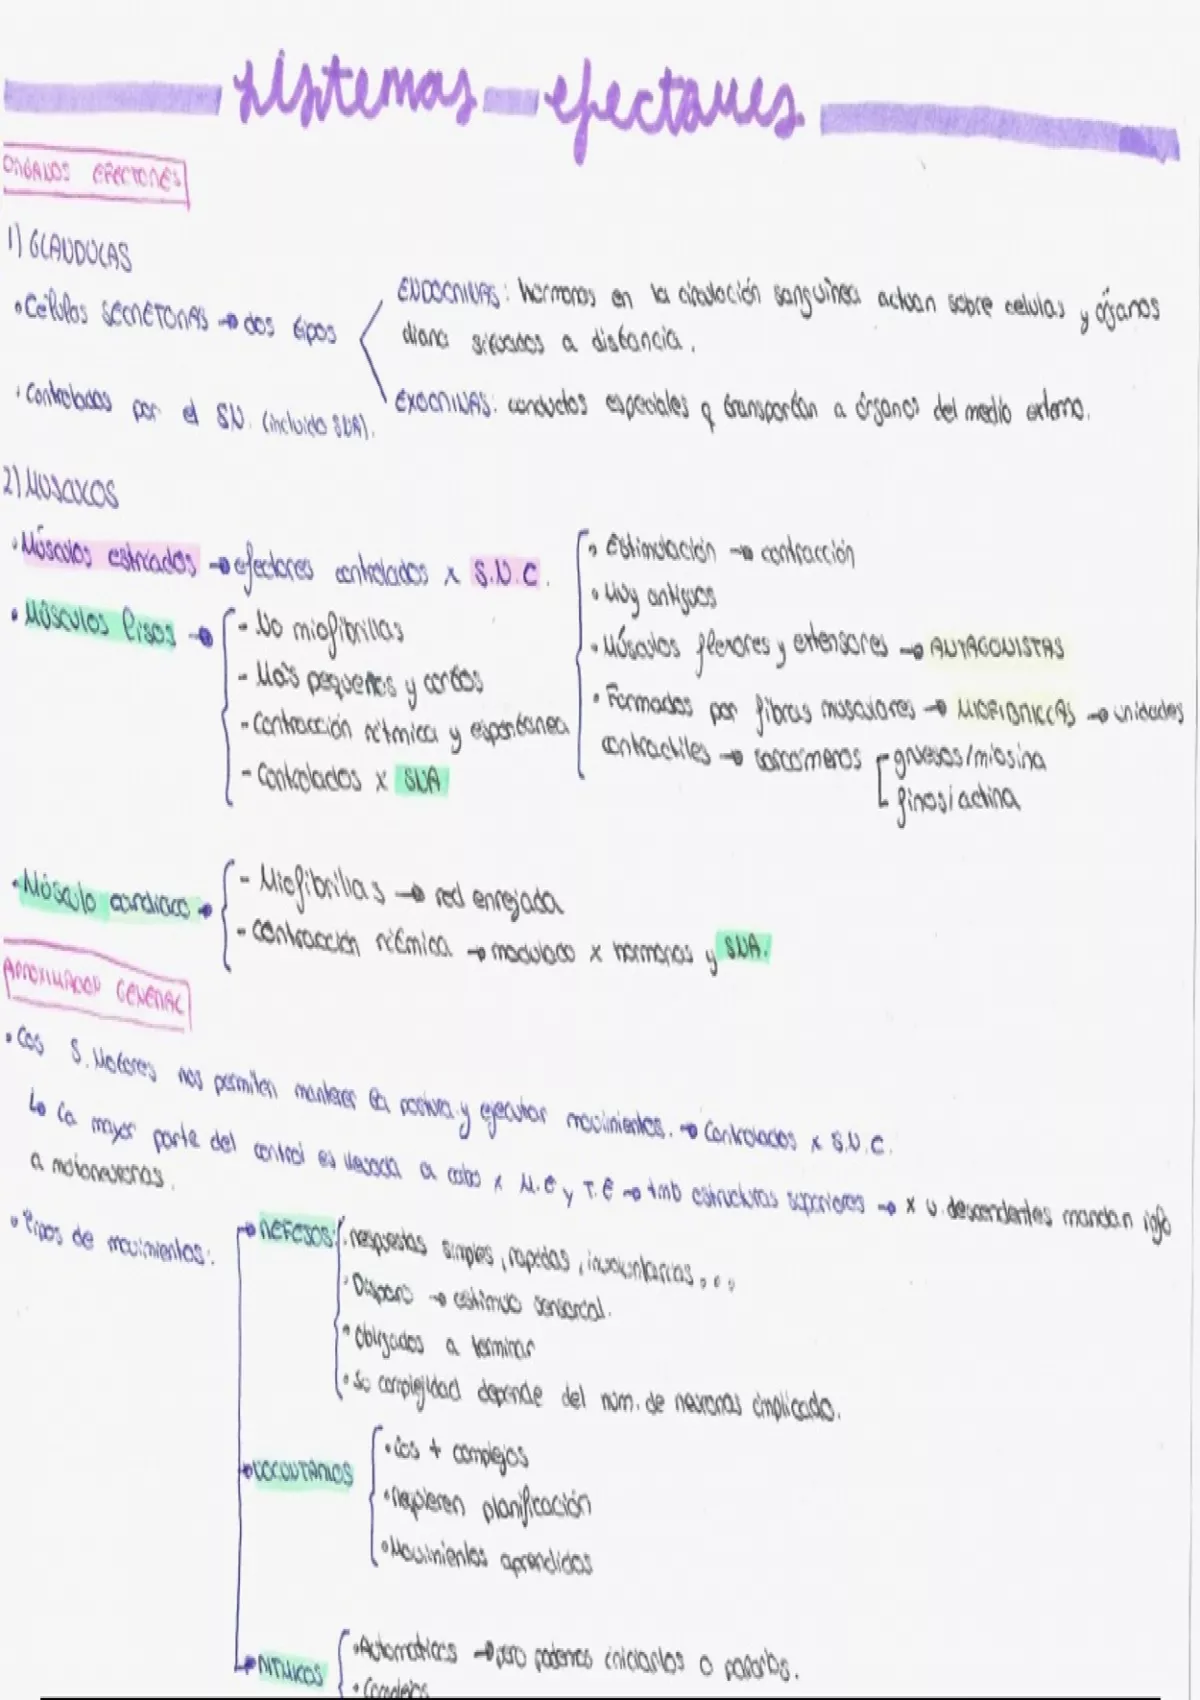 sistemas efectores
ORGANOS EFECTORES
1) GLANDULAS
• Células SECRETORAS → dos tipos
ENDOCRINAS: hormonas en la circulación sanguínea actuan sobre celulas y órganos
diana situados a distancia.
EXOCRINAS: conductos especiales q transportan a órganos del medio externo.
• Controladas por el SN. (incluido SNA).
2) MUSCULOS
• Músculos estriados → efectores controlados x S.N.C.
• Estimulación → contracción
• Muy antiguos
• Músculos flexores y extensores → ANTAGONISTAS
• Formados por fibras musculares → MIOFIBRILLAS → unidades
contractiles → sarcómeros
gruesos/miosina
finos/actina
• Músculos lisos →
- No miofibrillas
- Más pequeños y cortos
- Contracción rítmica y espontánea
- Controlados x SNA
• Músculo cardiaco →
- Miofibrillas → red enrejada
- Contracción rítmica → modulado x hormonas y SNA.
APROXIMACION GENERAL
• Los S. Motores nos permiten mantener la postura y ejecutar movimientos. → Controlados x S.N.C.
La mayor parte del control es llevada a cabo x M.E y T.E → tmb estructuras superiores → x v. descendentes mandan info
a motoneuronas.
• Tipos de movimientos:
→ REFLEJOS:
• respuestas simples, rapidas, involuntarias...
• Disparo → estimulo sensorial.
• Obligados a terminar
• Su complejidad depende del núm. de neuronas implicado.
→ VOLUNTARIOS
• Los + complejos
• Requieren planificación
• Movimientos aprendidos
→ RITMICOS
• Automáticos → pero podemos iniciarlos o pararlos.
• Complejos